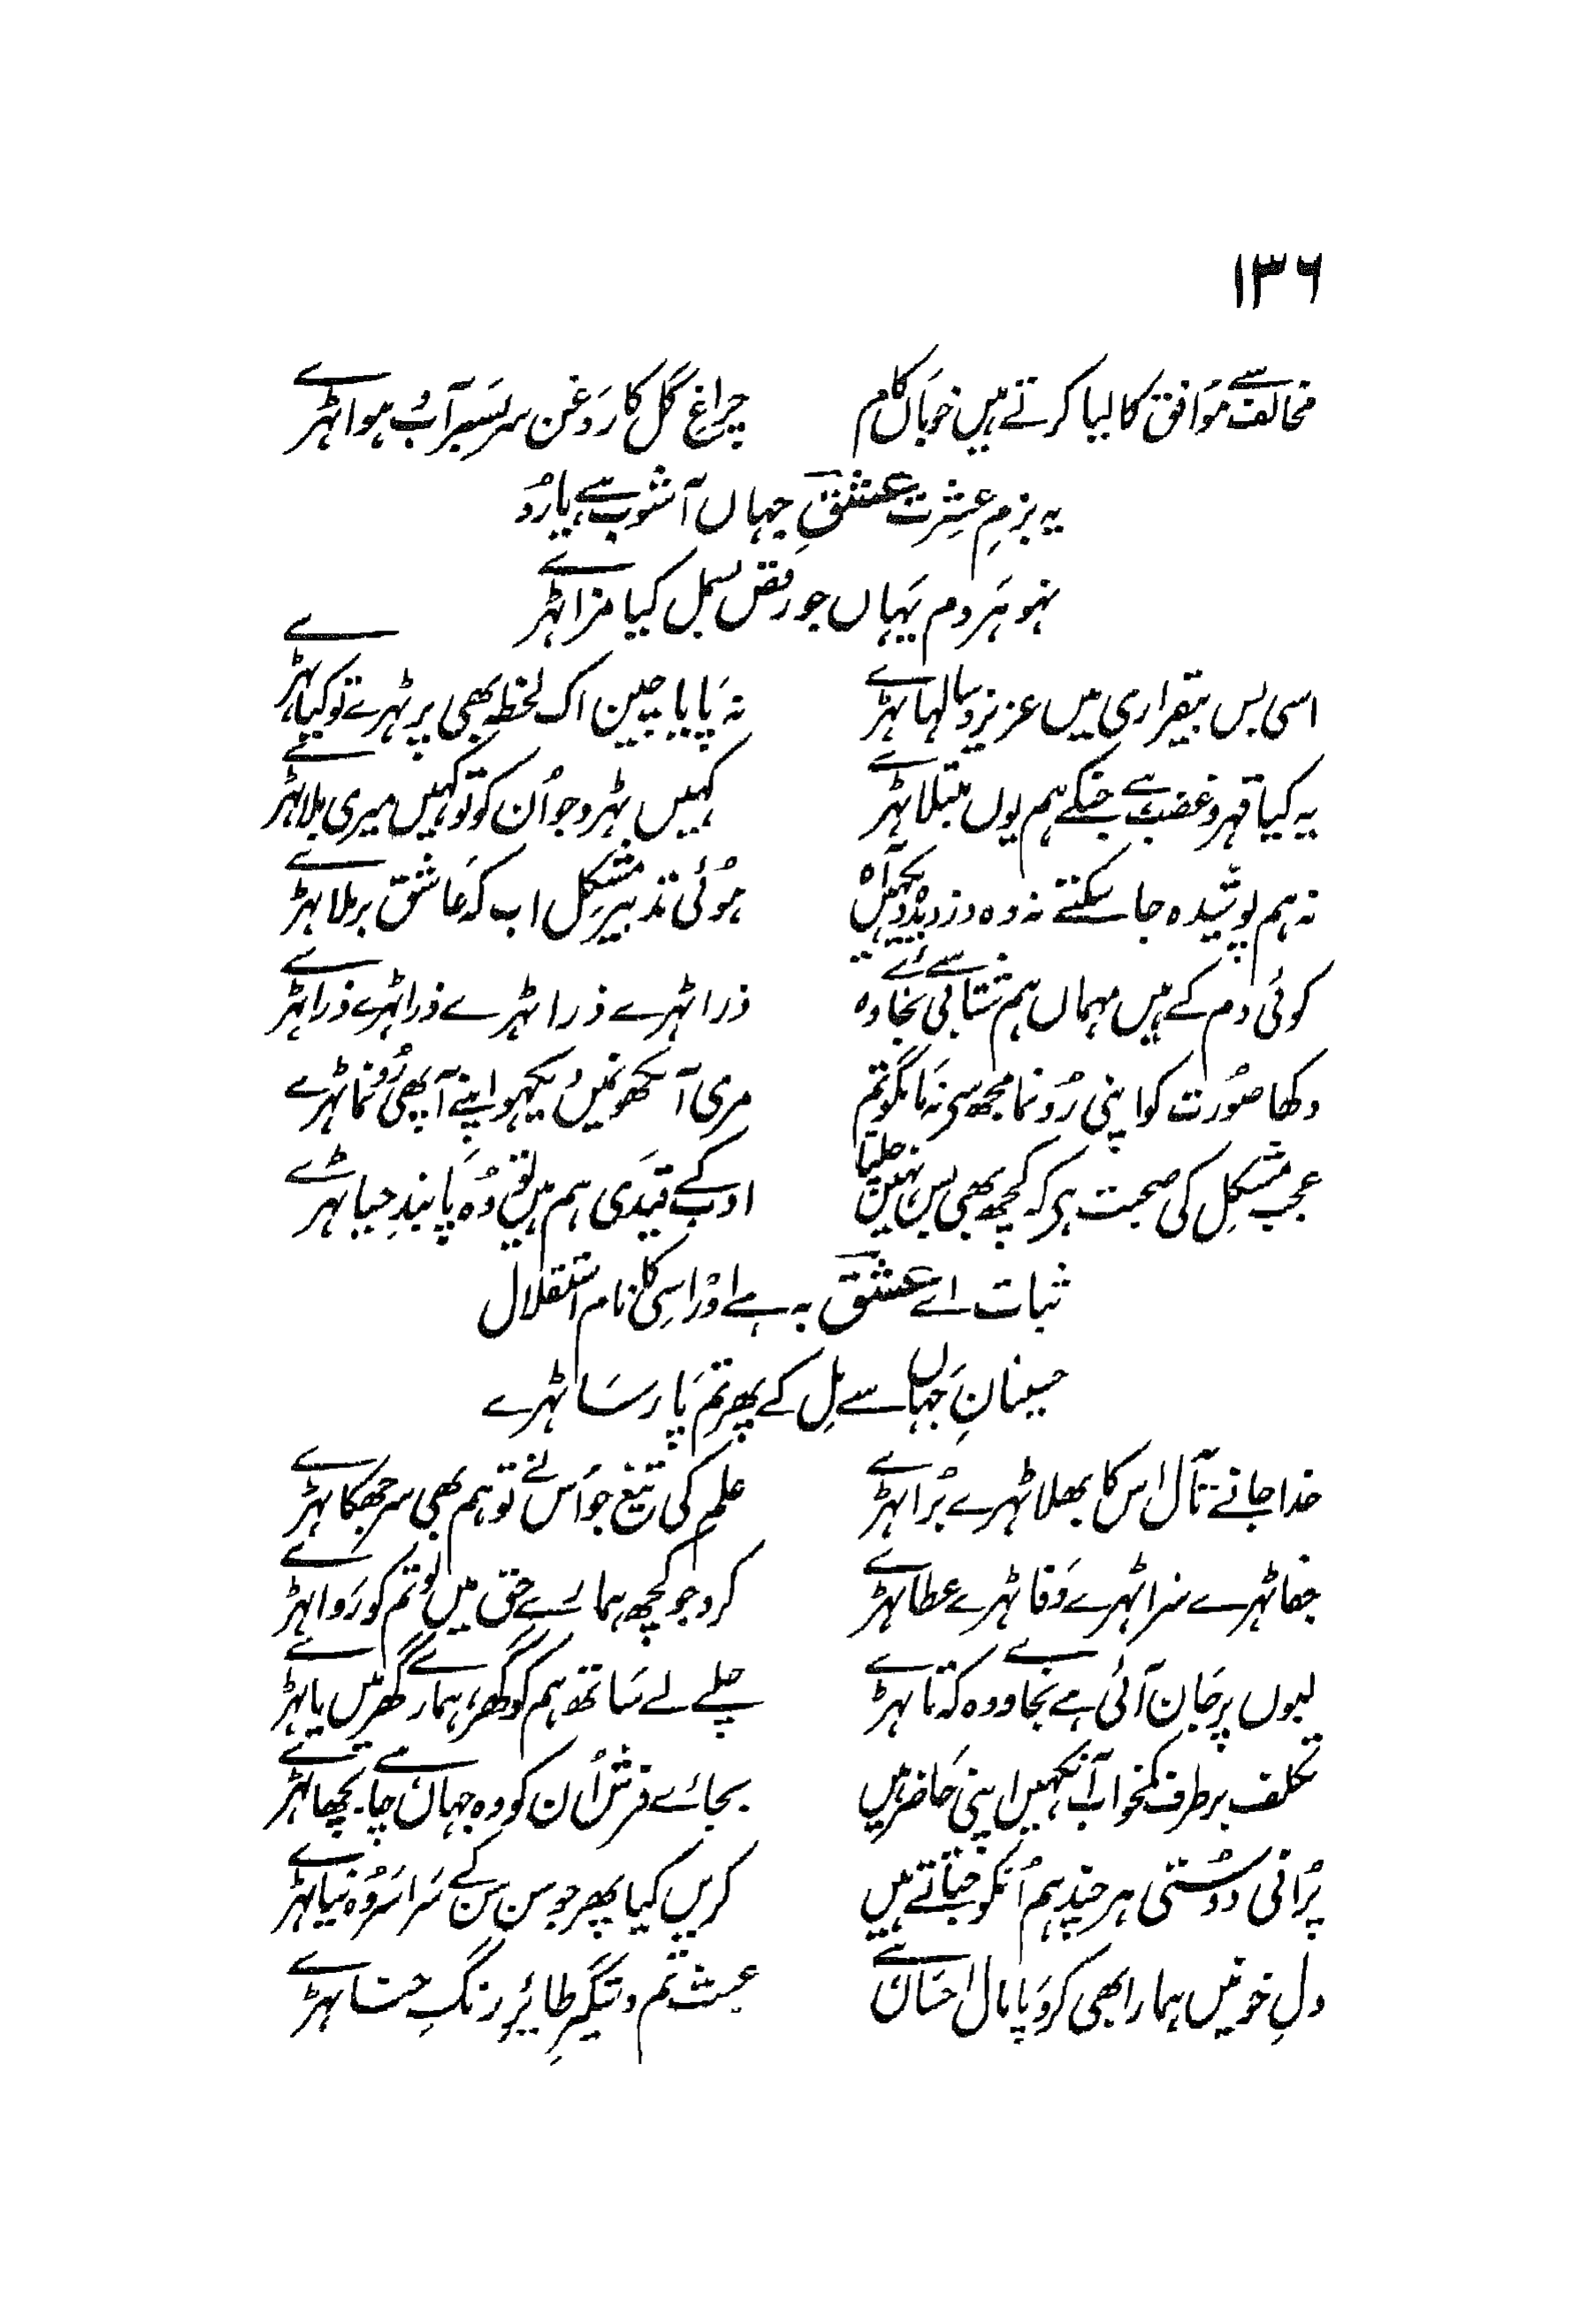 ۱۳۶
مخالف سے موافق کا لیا کرتے ہیں خوباں کام چراغِ گل کا روغن سر بسر آب و ہوا ٹہرے
یہ بزمِ عشرت عشقِ جہاں آشوب ہے یارو
نہو ہر دم یہاں جو رقص بسمل کیا مزا ٹہرے
اسی بس بیقراری میں عزیزو سالہا ٹہرے نہ پایا چین اک لحظہ بھی پر ٹہرے تو کیا ٹہرے
یہ کیا قہر و غضب ہے جنکے ہم یوں مبتلا ٹہرے کہیں ٹہرو جو اُن کو تو کہیں میری بلا ٹہرے
نہ ہم پوشیدہ جا سکتے نہ وہ دزدیدہ آہ ہوئی تدبیر مشکل اب کہ عاشق برملا ٹہرے
کوئی دم کے ہیں مہماں ہم شتابی سے نجاوہ ذرا ٹہرے ذرا ٹہرے ذرا ٹہرے ذرا ٹہرے
دکھا صورت کو اپنی رُونما مجھ سی نہ مانگو تم مری آنکھونمیں دیکہو اپنے آپھی رُونما ٹہرے
عجب مشکل کی صحبت ہی کہ کچھ بھی بس نہیں چلتا ادب کے قیدی ہم ہیں تو وہ پابندِ حیا ٹہرے
ثبات اے عشق یہ ہے اور اسی کا نام استقلال
حسینانِ جہاں سے مِل کے پھر تم پارسا ٹہرے
خدا جانے مآل اس کا بھلا ٹہرے بُرا ٹہرے علم کی تیغ جو اُس نے تو ہم بھی سر جھکا ٹہرے
جفا ٹہرے سزا ٹہرے وفا ٹہرے عطا ٹہرے کرو جو کچھ ہمارے حق میں تو تم کو روا ٹہرے
لبوں پر جان آئی ہے نجاوے وہ کہ تا ٹہرے چلے لے ساتھ ہم کو گھر، ہمارے گھر میں یا ٹہرے
تکلف برطرف کمخواب آنکہیں اپنی حاضر ہیں بجائے فرش اُن کو وہ جہاں چاہے بچھا ٹہرے
پُرانی دوستی ہر چند ہم اُنکو جتاتے ہیں کریں کیا پھر جو سن سن کے سراسر وُہ نیا ٹہرے
دلِ خونیں ہمارا بھی کرو پامال احساں سے عبث تم دستگیرِ طائرِ رنگِ حنا ٹہرے